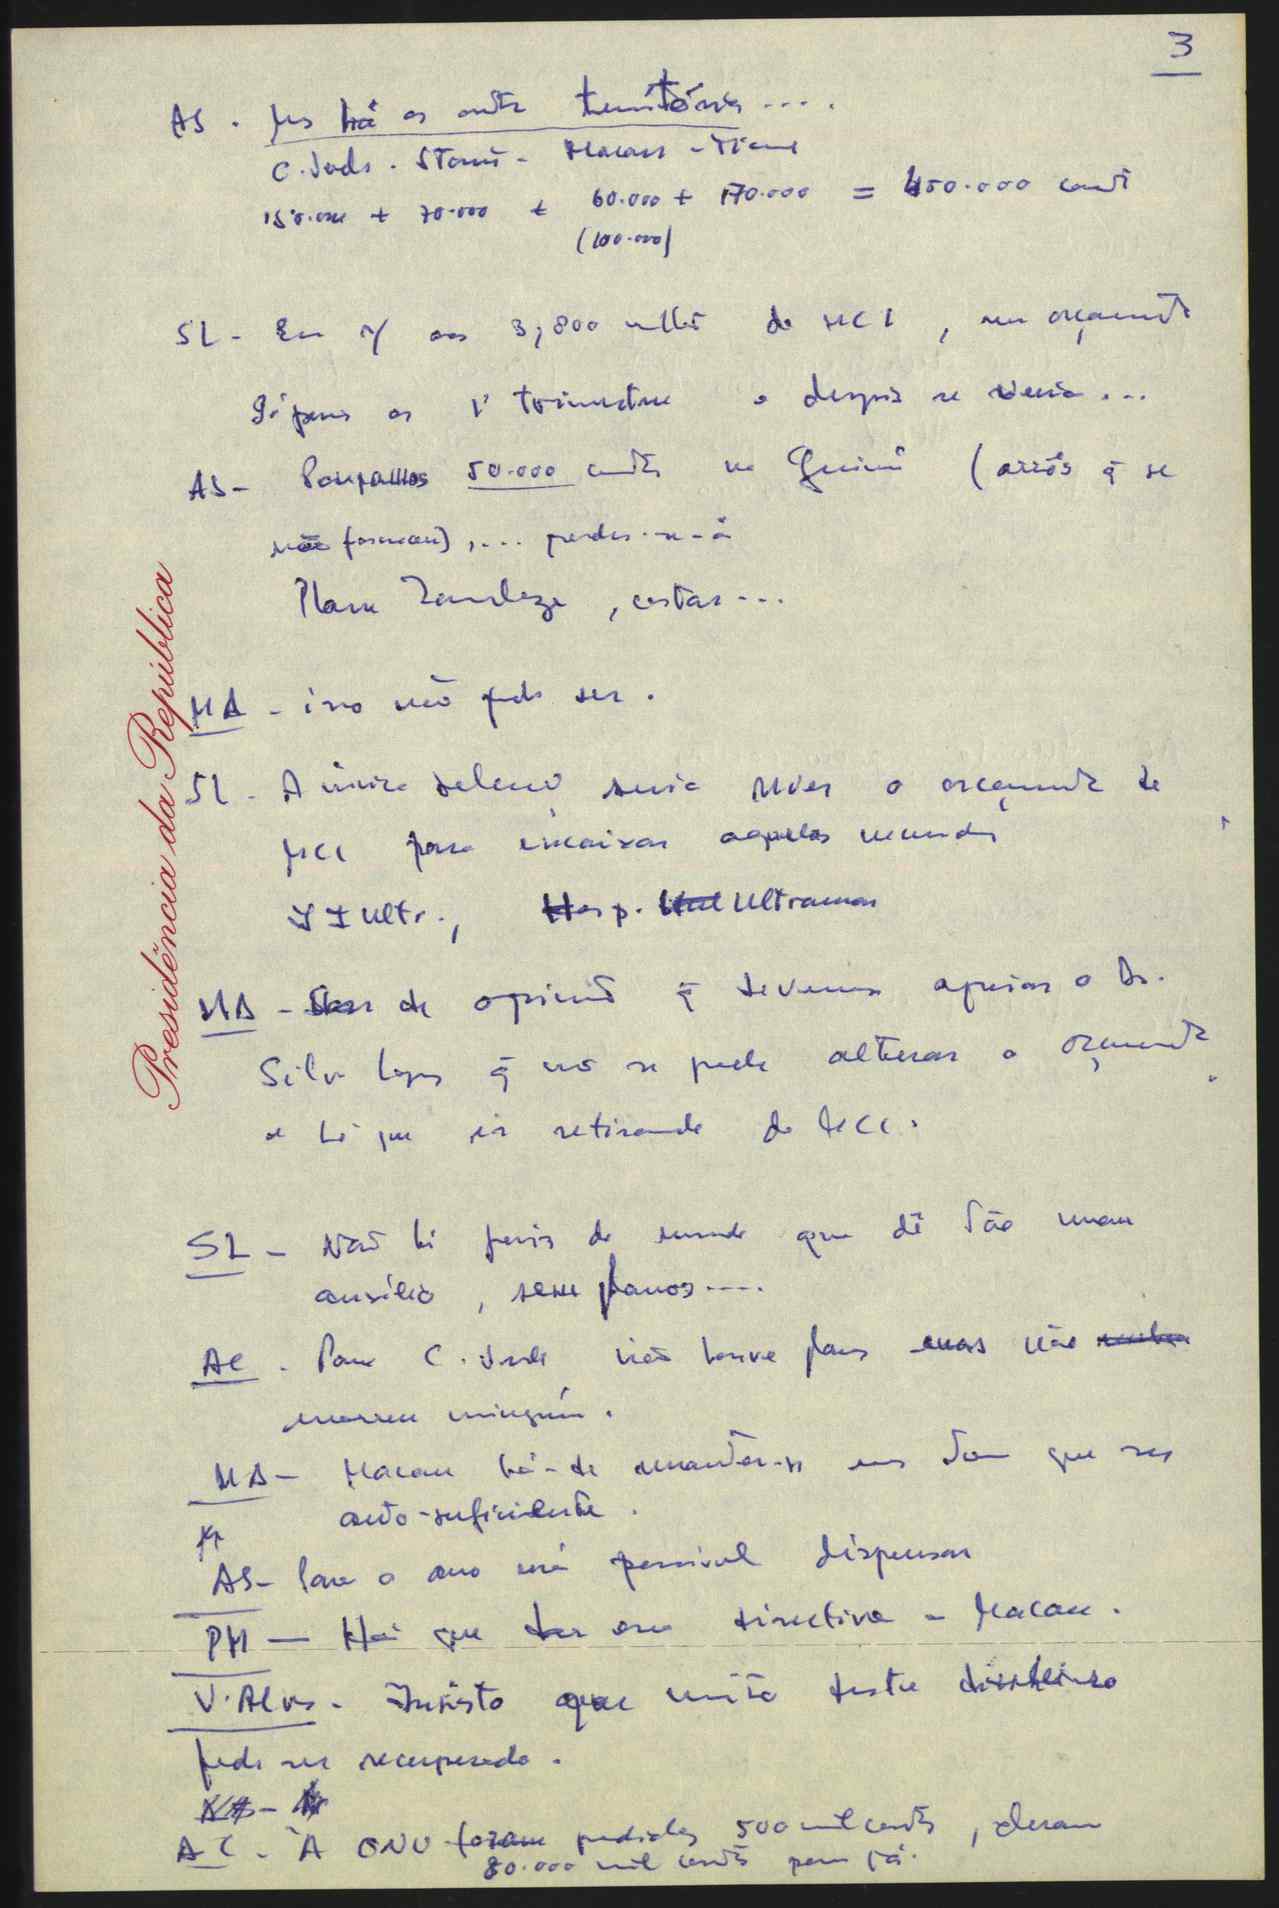 3
AS - Mas há os outros territórios ....
C. Verde - S Tomé - Macau - Timor
150.000 + 70.000 + 60.000 + 170.000 = 450.000 contos
(100.000)
SL - Em os 3,800 milhões do MCI, um orçamento
Só para o 1º trimestre e depois se veria ...
AS - Poupamos 50.000 contos na Guiné (arrôs q̄ se
não forneceu), ... perder-se-á
Plano Zambeze, costas ...
MA - isso não pode ser.
SL - A única solução seria rever o orçamento de
MCI para encaixar aquelas
J I Ultr., Hosp. Ultramar
MA - de opinião q̄ devemos apoiar o Dr.
Silva Lopes q̄ não se pode alterar o orçamento
e há que ir retirando do MCI.
SL - Não há país do mundo que dê tão mau
auxílio, sem planos ....
AC - Para C. Verde não houve plano mas não
morreu ninguém.
MA - Macau há-de manter-se mas tem que ser
auto-suficiente.
AS - Para o ano será possível dispensar
PM - Há que dar essa directiva a Macau.
V. Alves - Insisto que muito deste dinheiro
pode ser recuperado.
AC - À ONU foram pedidos 500 mil contos, deram
80.000 mil contos para já.
Presidência da República